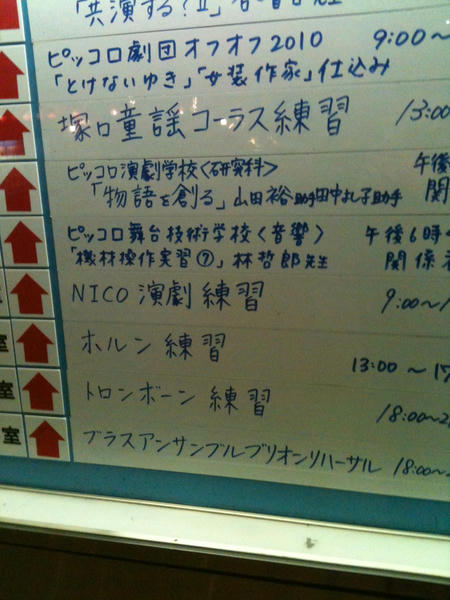 「共演する?
ピッコロ劇団オフオフ2010 9:00〜
「とけないゆき」「女装作家」仕込み
塚口童謡コーラス練習 13:00
ピッコロ演劇学校〈研究科〉 午後
「物語を創る」山田裕 助手田中丸子助手 関
ピッコロ舞台技術学校〈音響〉 午後6時
「機材操作実習⑦」林哲郎先生 関係者
NICO演劇練習 9:00〜1
ホルン練習 13:00〜17
室
トロンボーン練習 18:00〜2
室 ブラスアンサンブルブリオンリハーサル 18:00〜